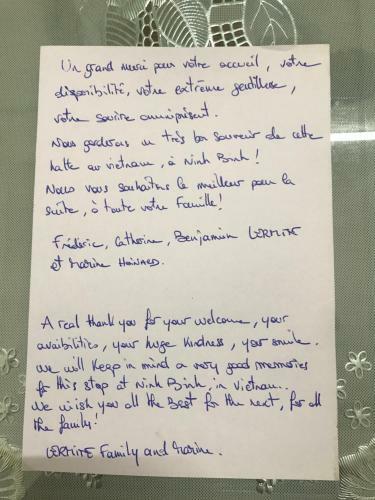 Un grand merci pour votre accueil, votre
disponibilité, votre extrême gentillesse,
votre sourire omniprésent.
Nous garderons un très bon souvenir de cette
halte au vietnam, à Ninh Binh !
Nous vous souhaitons le meilleur pour la
suite, à toute votre famille !
Frédéric, Catherine, Benjamin
et Marine
A real thank you for your welcome, your
avaibilities, your huge kindness, your smile.
We will keep in mind a very good memories
for this stop at Ninh Binh, in Vietnam.
We wish you all the Best for the next, for all
the family!
Family and Marine.